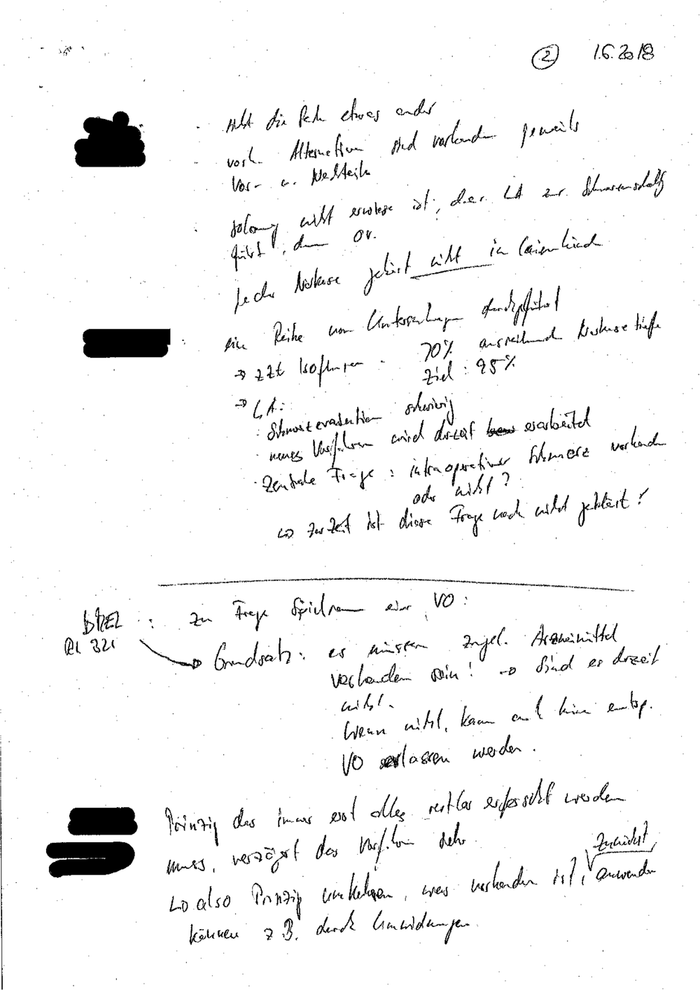 ② 1.6.2018
· sieht die Sache etwas anders
· versch. Alternativen sind vorhanden jeweils
Vor- u. Nachteile
· solange nicht erwiesen ist, dass LA zur Schmerzausschaltg
führt, dann OK.
jede Narkose gehört nicht in Laienhand
: eine Reihe von Untersuchungen durchgeführt
→ zZt Isofluran · 70% ausreichend Narkosetiefe
Ziel: 95%
→ LA:
· Schmerzevaluation schwierig
· neues Verfahren wird derzeit erarbeitet
· Zentrale Frage: intraoperativer Schmerz vorhanden
oder nicht?
↳ zur Zeit ist diese Frage noch nicht geklärt!
BMEL : Zu Frage Spielraum einer VO:
RL 321
→ Grundsatz: es müssen zugel. Arzneimittel
vorhanden sein! → Sind es derzeit
nicht.
Wenn nicht, kann auch keine entsp.
VO erlassen werden.
Prinzip das immer erst alles restlos erforscht werden
muss, verzögert das Verfahren sehr.
zunächst
↳ also Prinzip umkehren, was vorhanden ist, anwenden
können z.B. durch Umwidmungen.